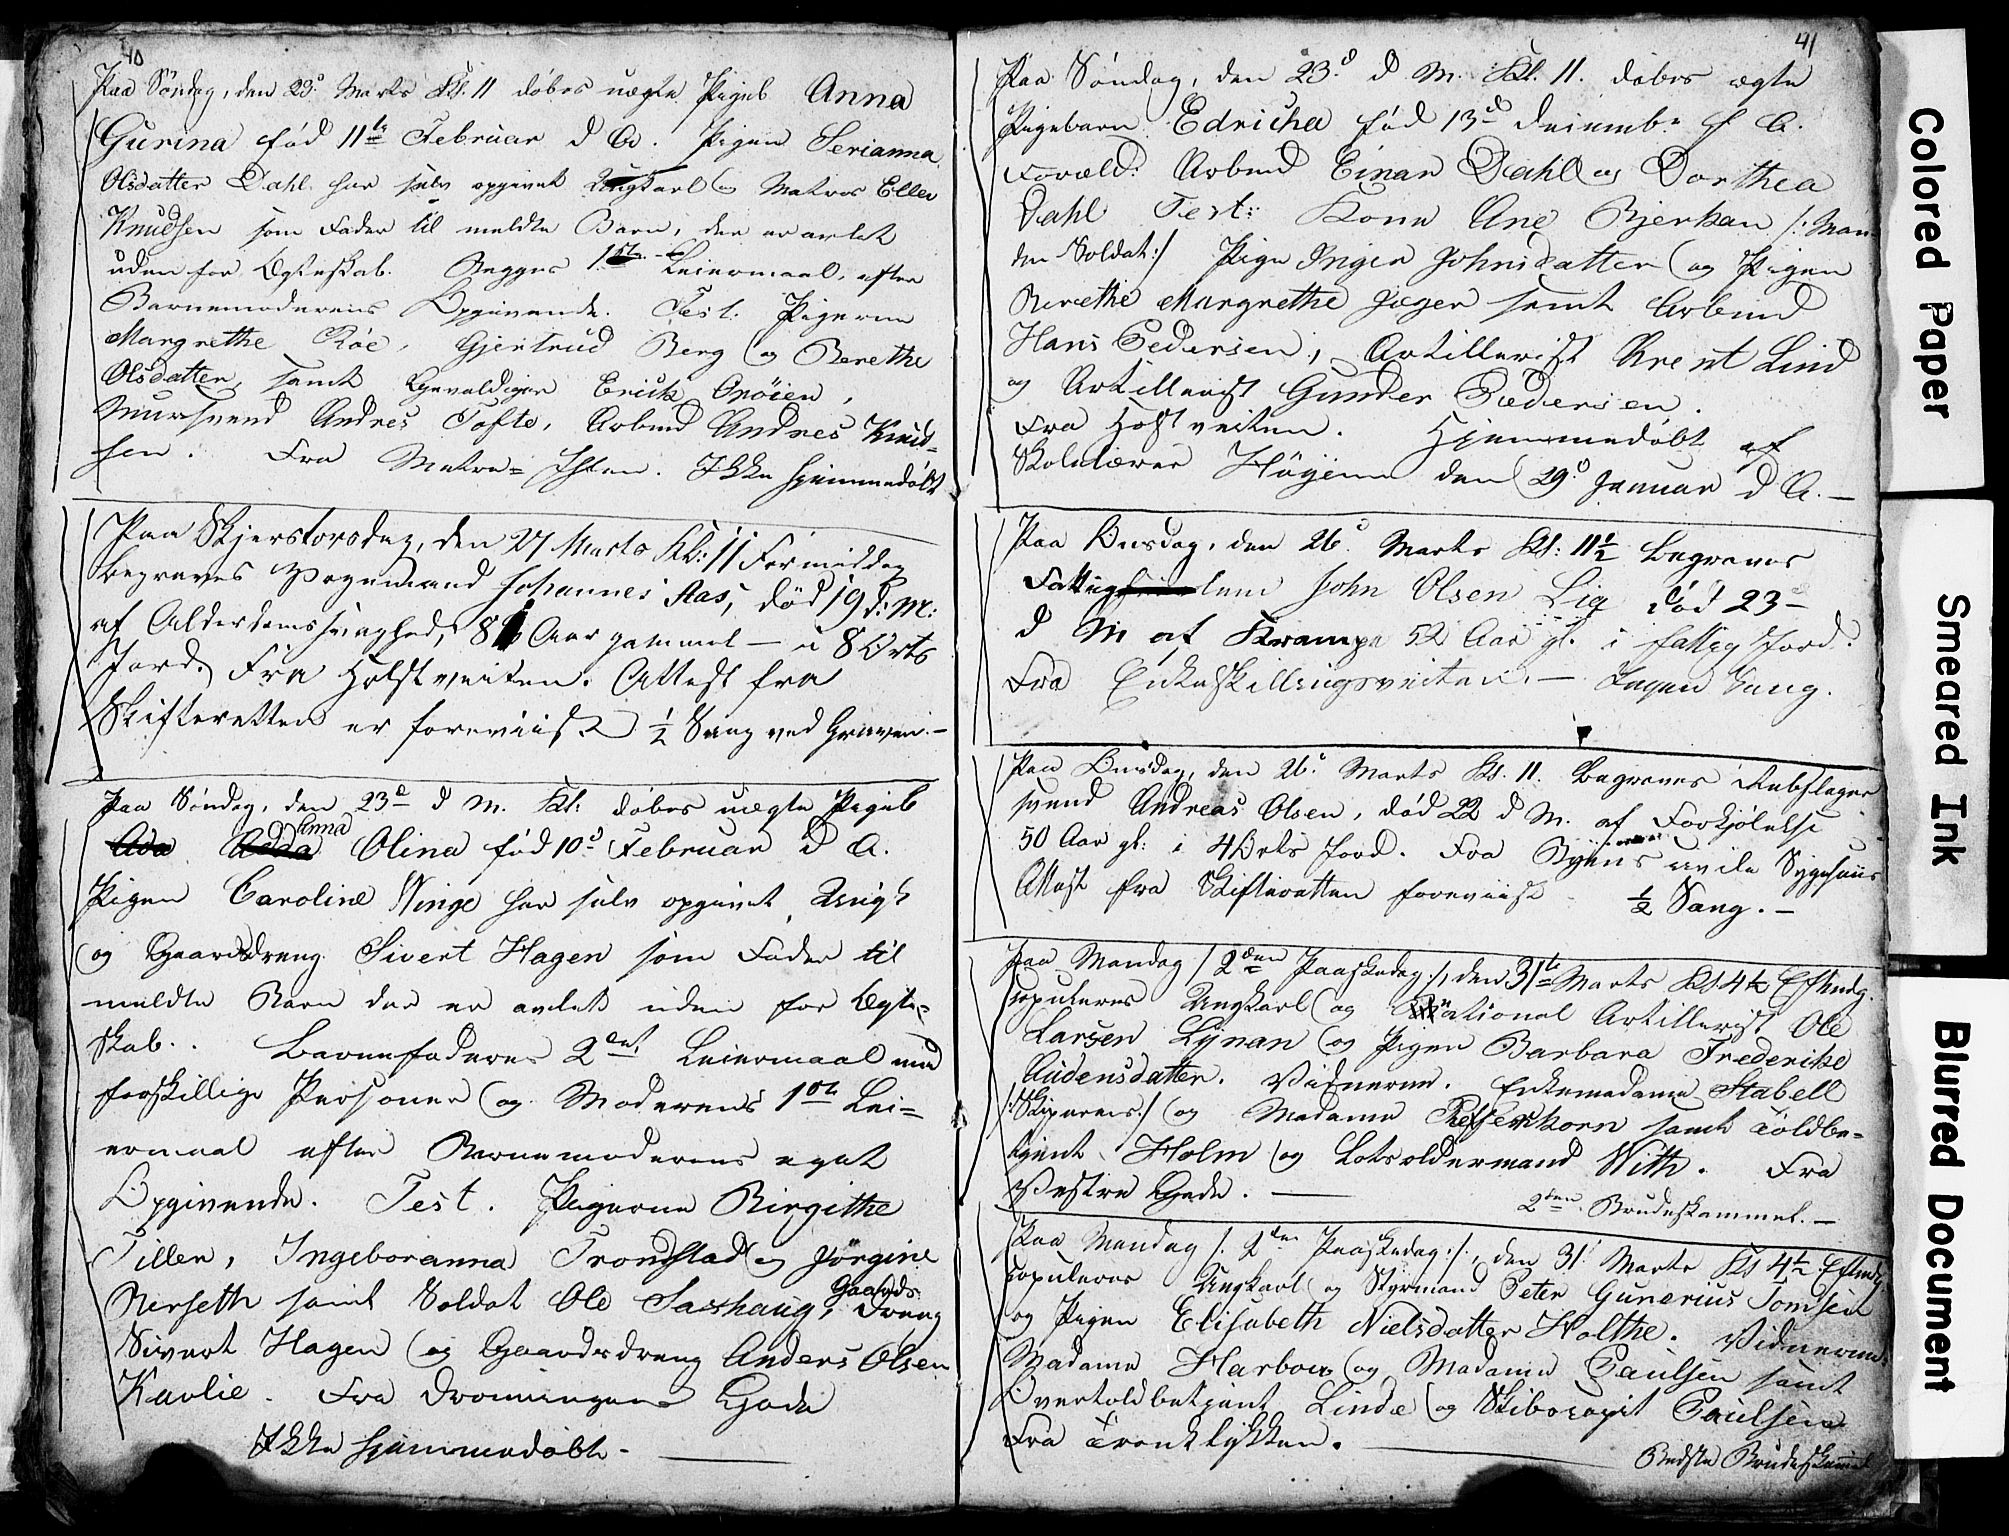 40
Paa Søndag, den 23d Marts Kl. 11 døbes uægte Pigeb Anna
Gurina fød 11te Februar d A. Pigen Serianna
Olsdatter Dahl har selv opgivet Ungkarl og Matros Eller
Knudsen som Fader til meldte Barn, der er avlet
uden for Ægteskab. Begges 1ste Leiermaal, efter
Barnemoderens Opgivende. Test. Pigerne
Margrethe Röe, Gjertrud Berg og Berethe
Olsdatter, samt Gevaldiger Erich Onöien,
Muursvend Andres Tofte, Arbmd Andres Knud-
sen. Fra Ikke hjemmedøbt
Paa Skjerstorsdag, den 27 Marts Kl: 11 Formiddag
begraves Johannes Aas, död 19 d: M:
af Alderdomssvaghed, Aar gammel — i 8 Orts
Jord. Fra Holstveiten. Attest fra
Skifteretten er foreviist ½ Sang ved Graven. —
Paa Søndag, den 23d d M. Kl: døbes uægte Pigeb
Ada Adda Anna Olina fød 10d Februar d A.
Pigen Caroline Winge har selv opgivet Ungk
og Gaardsdreng Sivert Hagen som Fader til
meldte Barn der er avlet uden for Ægte-
skab. Barnefaderes 2det Leiermaal med
forskillige Personer og Moderens 1ste Lei-
ermaal efter Barnemoderens eget
Opgivende. Test. Pigerne Birgithe
Tiller, Ingeboranna Trondstad og Jörgine
Berseth samt Soldat Ole Saxhaug, Gaards Dreng
Sivert Hagen og Gaardsdreng Anders Olsen
Kavlie. Fra Dronningens Gade
Ikke hjemmedøbt. —
41
Paa Søndag, den 23d d M. Kl. 11. døbes ægte
Pigebarn Edricha fød 13d Decembr f A.
Foræld: Arbmd Einar Dahl og Dorthea
Dahl Test: Kone Ane Bjerkan /: Man-
den Soldat:/ Pige Inger Johnsdatter og Pigen
Berethe Margrethe Jæger samt Arbmd
Hans Pedersen, Artillerist Brent Lind
og Artillerist Gunder Pedersen.
Fra Holstveiten. Hjemmedøbt af
Skolelærer Höyem den 29d Januar d A. —
Paa Onsdag, den 26d Marts Kl: 11½ begraves
Fattiglem John Olsen Lia död 23d
d M af Krampe 52 Aar gl. i fattig Jord.
Fra Enkeskillingsveiten. — Ingen Sang.
Paa Onsdag, den 26d Marts Kl. 11. begraves Rebslager
svend Andreas Olsen, död 22 d M. af Forkjölelse
50 Aar gl: i 4 Orts Jord. Fra Byens civile Sygehuus
Attest fra Skifteretten foreviist ½ Sang. —
Paa Mandag /: 2den Paaskedag:/, den 31te Marts Kl. 4½ Eftmdg.
copuleres Ungkarl og National Artillerist Ole
Larsen Lynan og Pigen Barbara Frederike
Audensdatter. Vidnerne. Enkemadame Stabell
/:Skipperens:/ og Madame samt Toldbe-
tjent Holm og Lotsoldermand With. Fra
Vestre Gade. —
2den Brudeskammel. —
Paa Mandag /: 2den Paaskedag:/, den 31d Marts Kl 4½ Eftmdg
copuleres Ungkarl og Styrmand Peter Gunerius Tomsen
og Pigen Elisabeth Nielsdatter Holthe. Vidnerne:
Madame Harboe og Madame Paulsen samt
Overtoldbetjent Linde og Skibscapit Paulsen
Fra Fronklykken. —
Bedste Brudeskammel
Colored Paper
Smeared Ink
Blurred Document